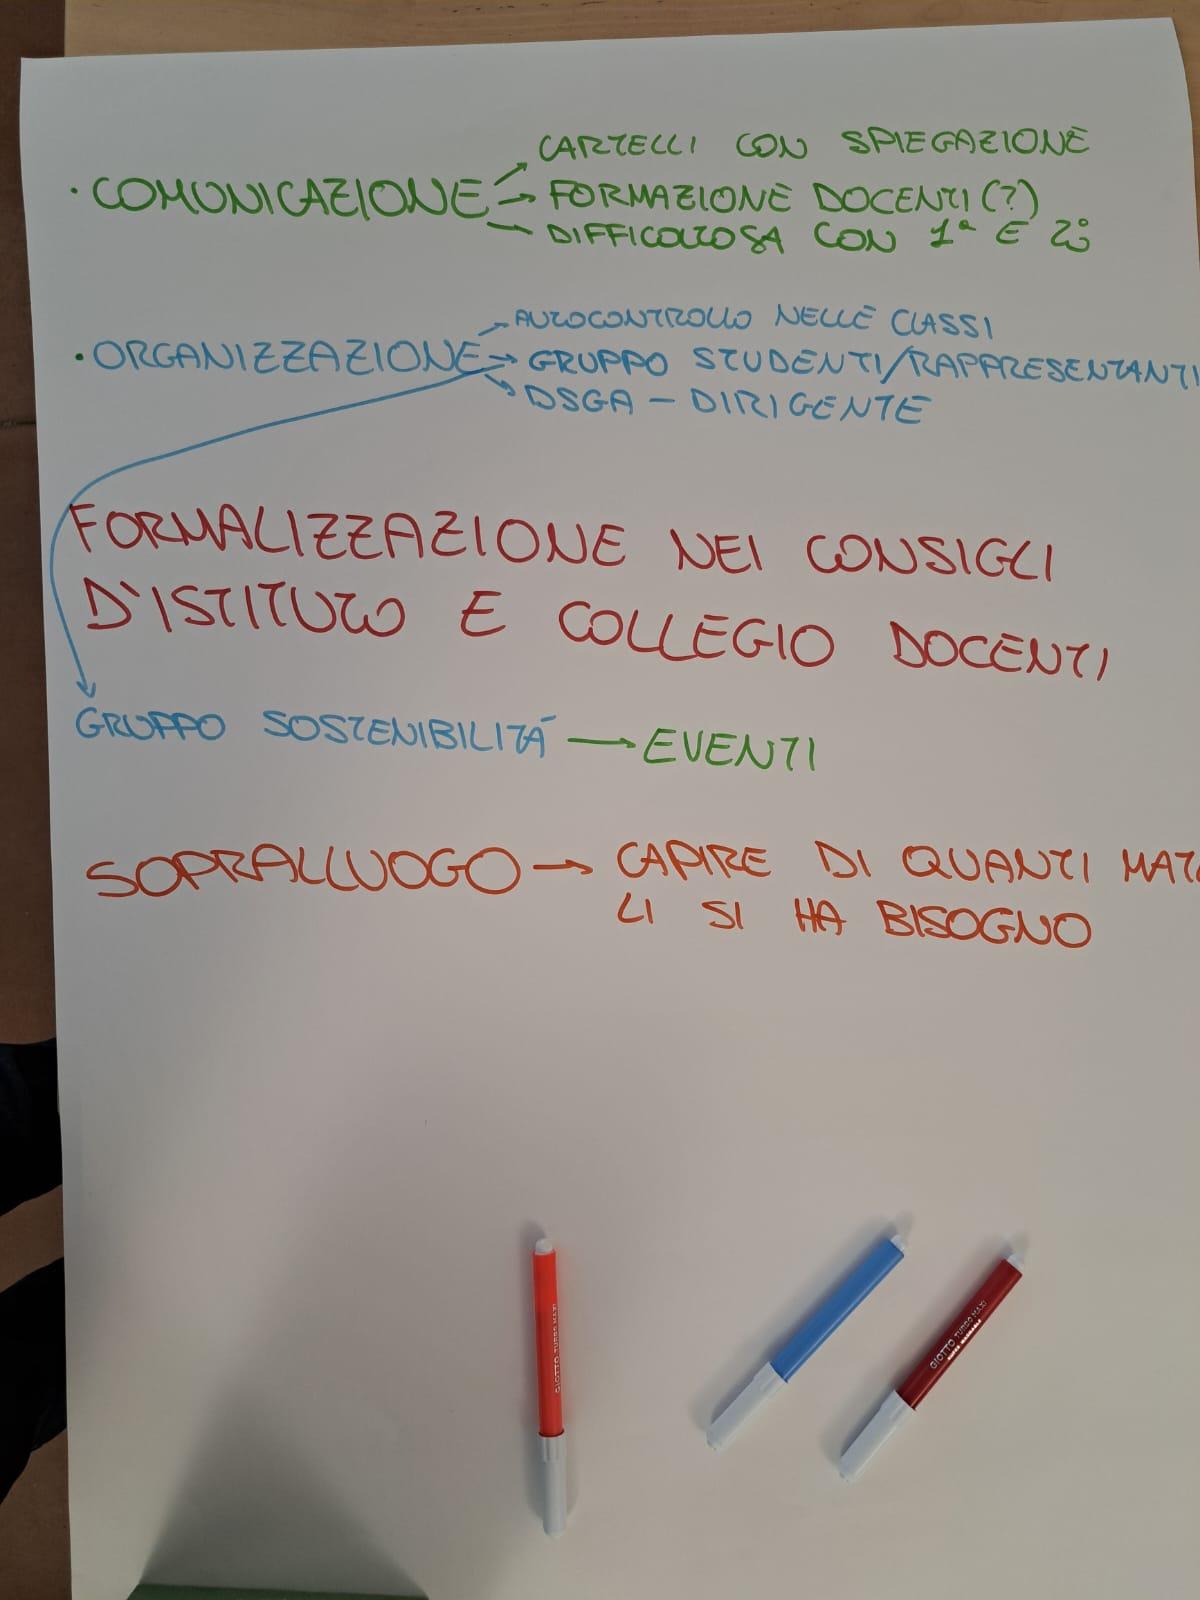 CARTELLI CON SPIEGAZIONE
· COMUNICAZIONE → FORMAZIONE DOCENTI (?)
DIFFICOLTOSA CON 1ª E 2ª
AUTOCONTROLLO NELLE CLASSI
· ORGANIZZAZIONE → GRUPPO STUDENTI/RAPPRESENTANTI
DSGA - DIRIGENTE
FORMALIZZAZIONE NEI CONSIGLI
D'ISTITUTO E COLLEGIO DOCENTI
GRUPPO SOSTENIBILITÁ → EVENTI
SOPRALLUOGO → CAPIRE DI QUANTI MAT
LI SI HA BISOGNO
GIOTTO TURBO MAXI
GIOTTO TURBO MAXI